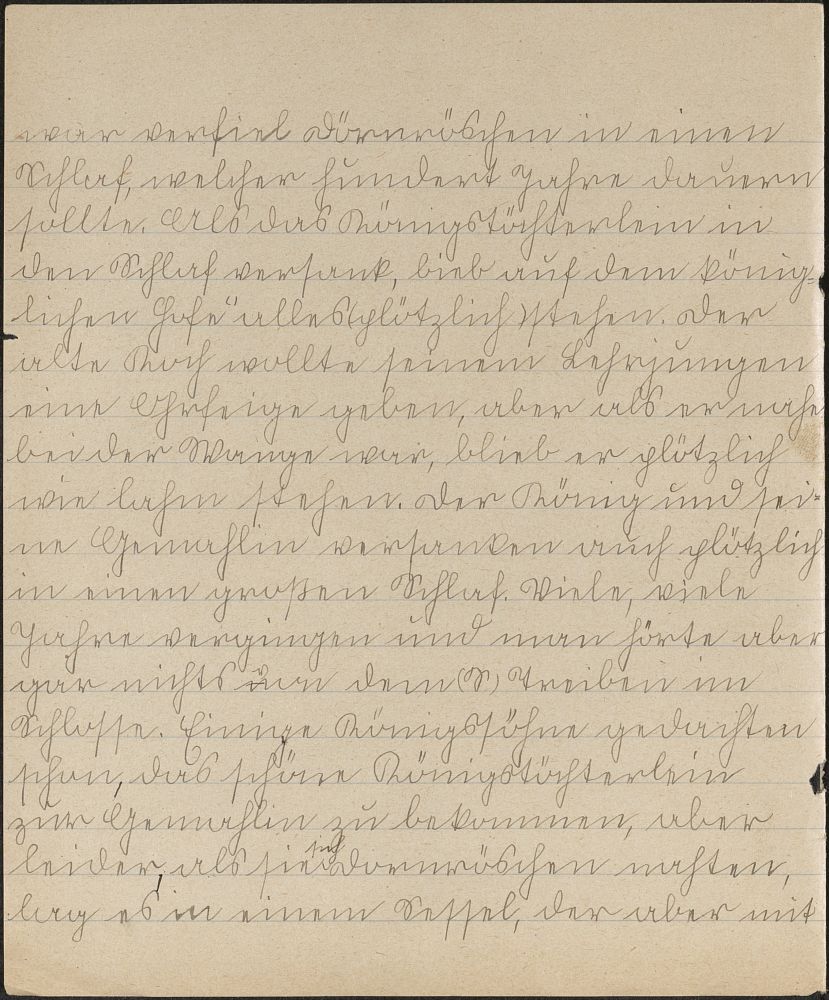 war verfiel Dörnröschen in einen
Schlaf, welcher hundert Jahre dauern
sollte. Als das Königstöchterlein in
den Schlaf versank, bieb auf dem könig-
lichen Hofe "alles (plötzlich) stehen. Der
alte Koch wollte seinem Lehrjungen
eine Ohrfeige geben, aber als er nahe
bei der Wange war, blieb er plötzlich
wie lahm stehen. Der König und sei-
ne Gemahlin versanken auch plötzlich
in einen großen Schlaf. Viele, viele
Jahre vergingen und man hörte aber
gar nichts von dem (S) Treiben im
Schlosse. Einige Königssöhne gedachten
schon, das schöne Königstöchterlein
zur Gemahlin zu bekommen, aber
leider, als sie sich Dornröschen nahten,
lag es in einem Sessel, der aber mit